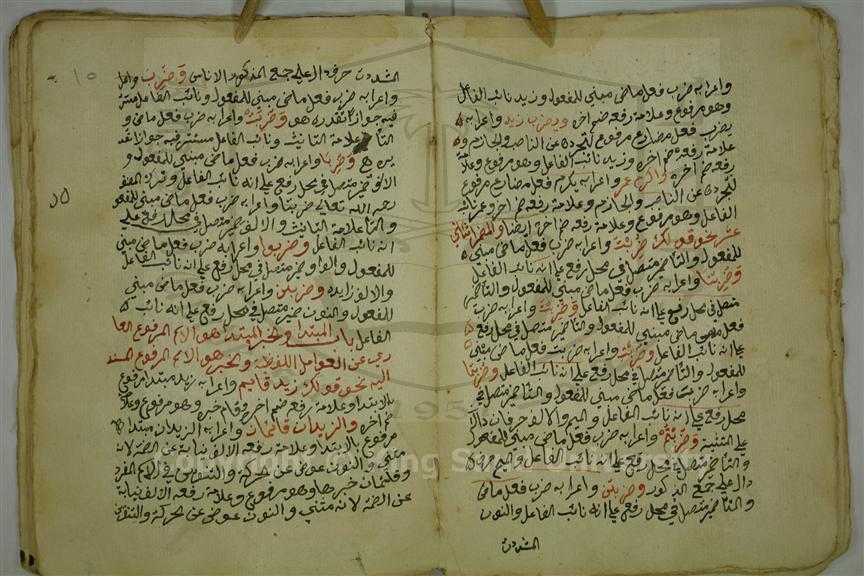 واعرابه ضرب فعل ماضي مبني للمفعول وزيد نائب الفاعل
وهو مرفوع وعلامة رفعه ضم اخره ويضرب زيد واعرابه
يضرب فعل مضارع مرفوع لتجرده عن الناصب والجازم و
علامة رفعه ضم اخره وزيد نائب الفاعل وهو مرفوع وعلامة
رفعه ضم اخره واكرم عمر واعرابه يكرم فعل مضارع مرفوع
لتجرده عن الناصب والجازم وعلامة رفعه ضم اخر وعمر نائب
الفاعل وهو مرفوع وعلامة رفعه ضم اخره ايضا والمضمر اثنا
عشر نحو قولك ضربت واعرابه ضرب فعل ماضي مبني
للمفعول والتا ضمير متصل في محل رفع على انه نائب الفاعل
وضربنا واعرابه ضرب فعل ماضي مبني للمفعول والنا ضمير
متصل في محل رفع على انه نائب الفاعل وضربت واعرابه ضرب
فعل ماضي مبني للمفعول والتا ضمير متصل في محل رفع
على انه نائب الفاعل وضربت واعرابه ضربت فعل ماضي مبني
للمفعول والتا ضمير متصل في محل رفع على انه نائب الفاعل وضربتما
واعرابه ضربت فعل ماضي مبني للمفعول والتا ضمير متصل في
محل رفع على انه نائب الفاعل والميم والالف حرفان دالان
على التثنية وضربتم واعرابه ضرب فعل ماضي مبني للمفعول
والتا ضمير متصل في محل رفع على انه نائب الفاعل والميم حرف
دال على جمع الذكور وضربتن واعرابه ضرب فعل ماضي
والتا ضمير متصل في محل رفع على انه نائب الفاعل والنون
المشددت
المشددت حرف دال على جمع المذكور الاناس وضرب واصل
واعرابه ضرب فعل ماضي مبني للمفعول ونائب الفاعل مستتر
فيه جوازا تقديره هو وضربت واعرابه ضرب فعل ماضي و
التا علامة التانيث ونائب الفاعل مستتر فيه جوازا تقد
يره هي وضربا واعرابه ضرب فعل ماضي مبني للمفعول و
الالف ضمير متصل في محل رفع على انه نائب الفاعل وترك المصنف
رحمه الله تعالى ضربتا واعرابه ضرب فعل ماضي مبني للمفعول
والتا علامة التانيث والالف ضمير متصل في محل رفع على
انه نائب الفاعل وضربوا واعرابه ضرب فعل ماضي مبني
للمفعول والواو ضمير متصل في محل رفع على انه نائب الفاعل
والالف زايده وضربن واعرابه ضرب فعل ماضي مبني
للمفعول والنون ضمير متصل في محل رفع على انه نائب
الفاعل باب المبتدا والخبر المبتدا هو الاسم المرفوع العا
ري عن العوامل اللفظية والخبر هو الاسم المرفوع المسند
اليه نحو قولك زيد قايم واعرابه زيد مبتدا مرفوع
بالابتدا وعلامة رفعه ضم اخره وقايم خبره وهو مرفوع وعلامة
ضم اخره والزيدان قائمان واعرابه الزيدان مبتدا
مرفوع بالابتدا وعلامة رفعه الالف نيابة عن الضمة لانه
مثنى والنون عوض عن الحركة والتنوين في الاسم المفرد
وقائمان خبرها وهو مرفوع وعلامة رفعه الالف نيابة
عن الضمة لانه مثنى والنون عوض عن الحركة والتنوين
١٥